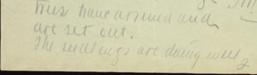 have arrived and
are set out.
The seedlings are doing well